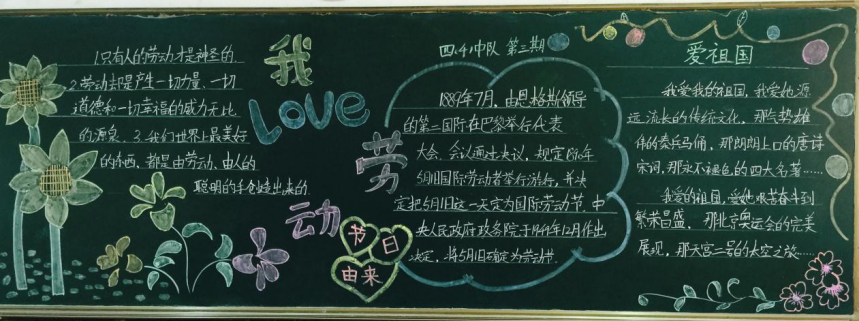 1.只有人的劳动才是神圣的
2.劳动却是产生一切力量、一切
道德和一切幸福的威力无比
的源泉。3.我们世界上最美好
的东西,都是由劳动、由人的
聪明的手创造出来的
我
LOVE
劳
动
节日
由来
四.(4)中队 第三期
1889年7月,由恩格斯领导
的第二国际在巴黎举行代表
大会。会议通过决议,规定1890年
5月1日国际劳动者举行游行,并决
定把5月1日这一天定为国际劳动节。中
央人民政府政务院于1949年12月作出
决定,将5月1日确定为劳动节.
爱祖国
我爱我的祖国,我爱她源
远流长的传统文化,那气势雄
伟的秦兵马俑,那朗朗上口的唐诗
宋词,那永不褪色的四大名著……
我爱的祖国,爱她艰苦奋斗到
繁荣昌盛,那北京奥运会的完美
展现,那天宫二号的太空之旅……